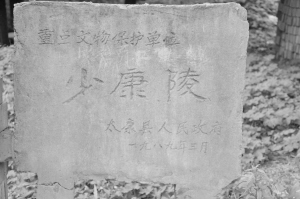 重点文物保护单位
少康陵
太康县人民政府
一九八九年三月